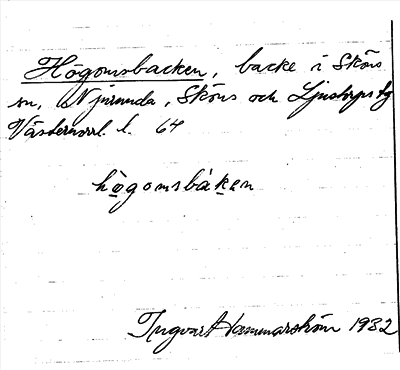 Högomsbacken, backe i Sköns
sn, Njurunda, Sköns och Ljustorps tg
Västernorrl. l. 64
högomsbàken
Ingvart Hammarström 1932